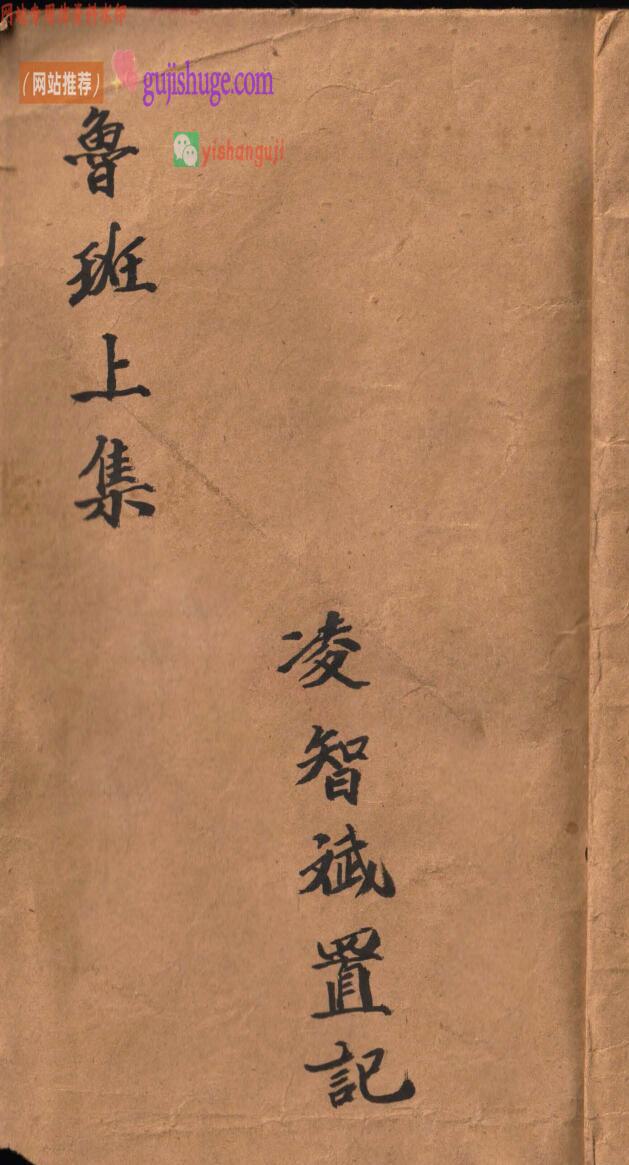 网站专用浴资料水印
（网站推荐）
gujishuge.com
yishanguji
魯班上集
凌智斌置記